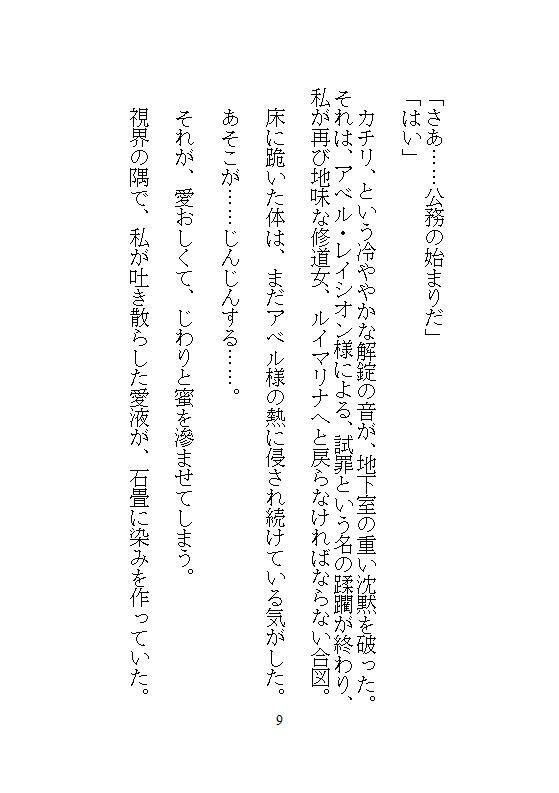 「さあ……公務の始まりだ」
「はい」
　カチリ、という冷ややかな解錠の音が、地下室の重い沈黙を破った。
それは、アベル・レイシオン様による、試罪という名の蹂躙が終わり、
私が再び地味な修道女、ルイマリナへと戻らなければならない合図。
　床に跪いた体は、まだアベル様の熱に侵され続けている気がした。
　あそこが……じんじんする……。
　それが、愛おしくて、じわりと蜜を滲ませてしまう。
　視界の隅で、私が吐き散らした愛液が、石畳に染みを作っていた。
9